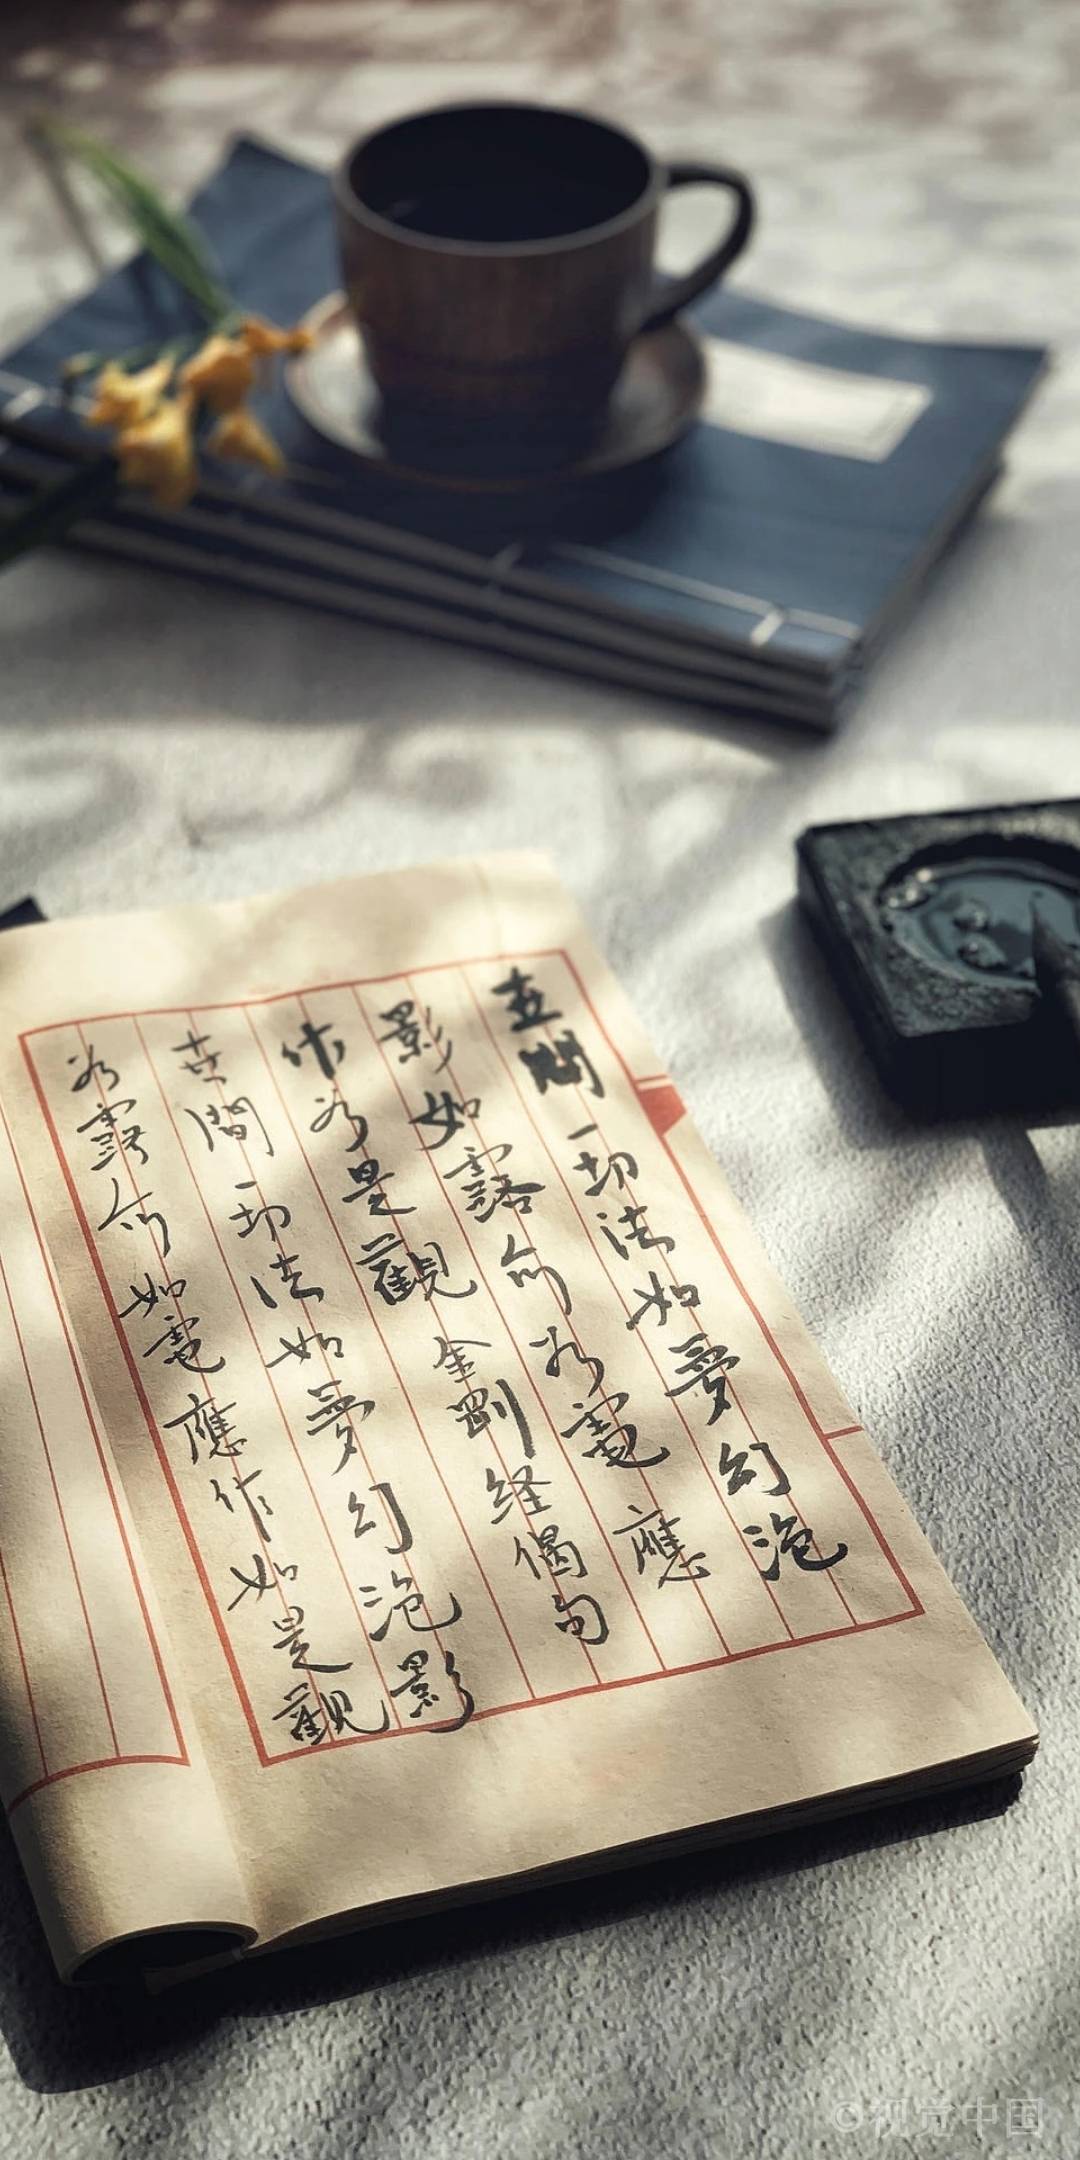 世間一切法如夢幻泡
影如露亦如電應
作如是觀 金剛経偈句
世間一切法如夢幻泡影
如露亦如電應作如是觀
©视觉中国